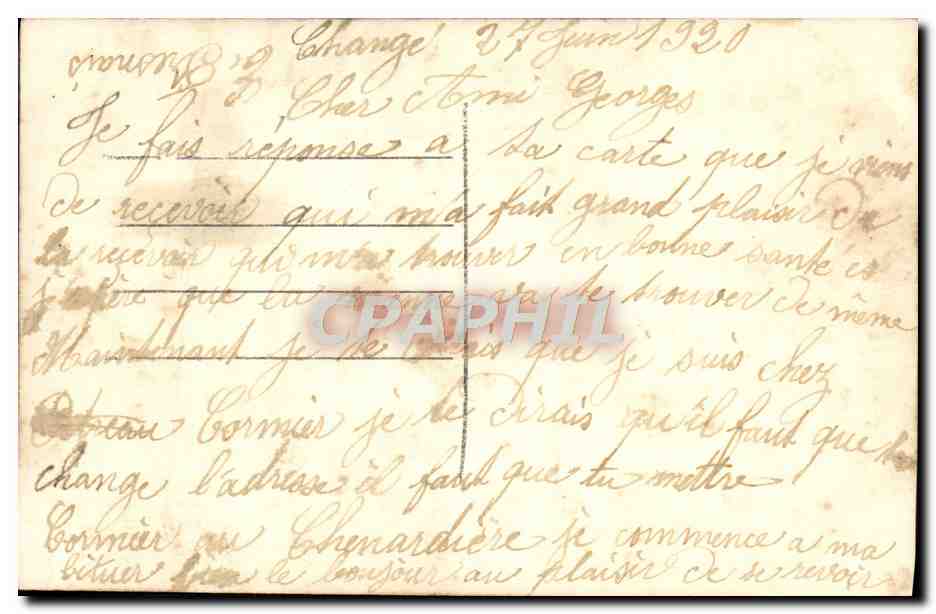 Changé 27 Juin 1920
Cher Ami Georges
Je fais réponse a ta carte que je viens
de recevoir qui m'a fait grand plaisir de
la recevoir qui m'a trouver en bonne santé et
que la vas te trouver de même
Maintenant je te dirais que je suis chez
Cormier je te dirais qu'il faut que tu
change l'adresse il faut que tu mettre
Cormier au Chenardière je commence a ma
bituer bien le bonjour au plaisir de se revoir
CPAPHIL